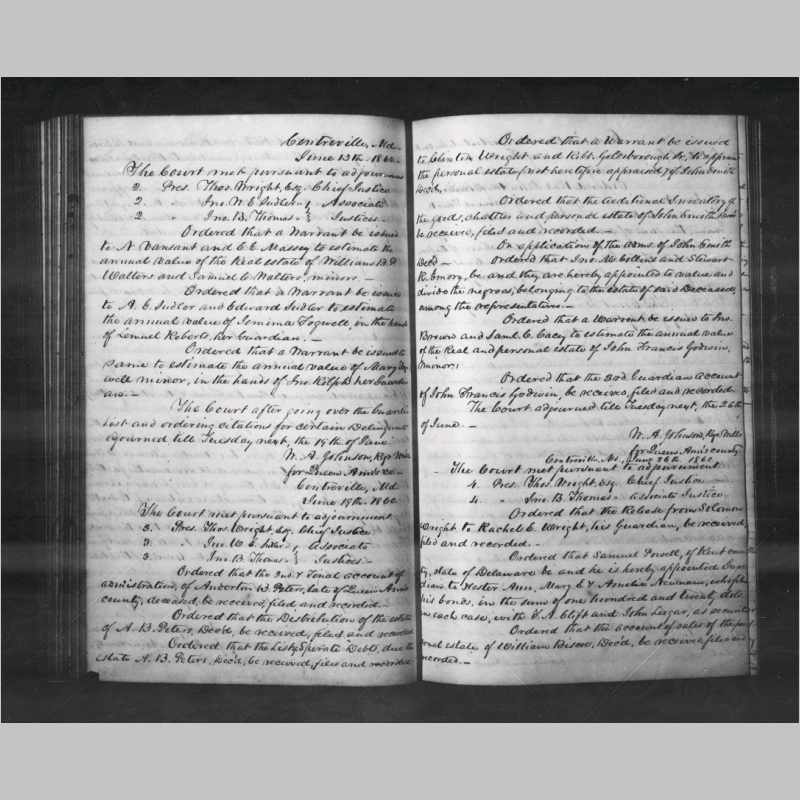 Centreville, Md.
June 13th 1860.
The Court met pursuant to adjournm
2. Pres. Thos. Wright, Esq. Chief Justice
2. " Jno. W. E. Sudler } Associate
2. " Jno. B. Thomas } Justices.
Ordered that a Warrant be issued
to N Vansant and C. C. Massey to estimate the
annual value of the Real estate of William B. P
Walters and Samuel C. Walters, minors. —
Ordered that a Warrant be issued
to A. E. Sudler and Edward Sudler to estimate
the annual value of Jemima Fogwell, in the hands
of Lemuel Roberts, her Guardian. —
Ordered that a Warrant be issued to
same to estimate the annual value of Mary
well minor, in the hands of Jno. Rolph her Guard
an. —
The Court after going over the Guardian
List and ordering citations for certain Delinquents
ajourned till Tuesday next, the 19th of June.
W. A. Johnson, Regr. Wills
for Queen Ann's co.
Centreville, Md
June 19th 1860.
The Court met pursuant to adjournment
3. Pres. Thos. Wright, Esq. Chief Justice
3. " Jno. W. E. Sudler } Associate
3. " Jno. B. Thomas } Justices. —
Ordered that the 2nd & Final account of
administration, of Anderton W. Peters, late of Queen Ann's
county, deceased, be received, filed and recorded. —
Ordered that the Distribution of the estate
of A. B. Peters, Dec'd, be received, filed and recorded
Ordered that the List of Sperate Debts, due the
estate A. B. Peters, Dec'd, be received, filed and recorded
Ordered that a Warrant be issued
to Wright and Robt. Goldsborough Sr. to appraise
the personal estate, not heretofore appraised, of John Smith
Dec'd.
Ordered that the additional Inventory of
the goods, chattles and personal estate of John Smith
be received, filed and recorded. —
On application of the adms. of John Smith
Dec'd — Ordered that Jno. McCollins and Stewart
R. Emory, be and they are hereby appointed to value and
divide the negroes, belonging to the estate of said Deceased,
among the representatives. —
Ordered that a Warrant be issued to Jno.
Brown and Saml. C. Cacy to estimate the annual value
of the Real and personal estate of John Francis Godwin,
minor.
Ordered that the 3rd Guardian account
of John Francis Godwin, be received, filed and recorded.
The Court adjourned till Tuesday next, the 26th
of June. —
W. A. Johnson, Regr. Wills
for Queen Ann's county
Centreville, Md. June 26th 1860.
The Court met pursuant to adjournment
4. Pres. Thos. Wright, Esq. Chief Justice
4. " Jno. B. Thomas associate Justice.
Ordered that the Release from Solomon
Wright to Rachel C. Wright, his Guardian, be received,
filed and recorded. —
Ordered that Samuel Powell, of Kent coun
ty, state of Delaware be and he is hereby appointed Guar
dian to Hester Ann, Mary E. & Amelia Newnam, who files
his bonds, in the sums of one hundred and twenty dols.
in each case, with C. A. Clift and John Legar, as securities
Ordered that the account of sales of the pers
onal estate of William Bisco, Dec'd, be received, filed and
recorded. —